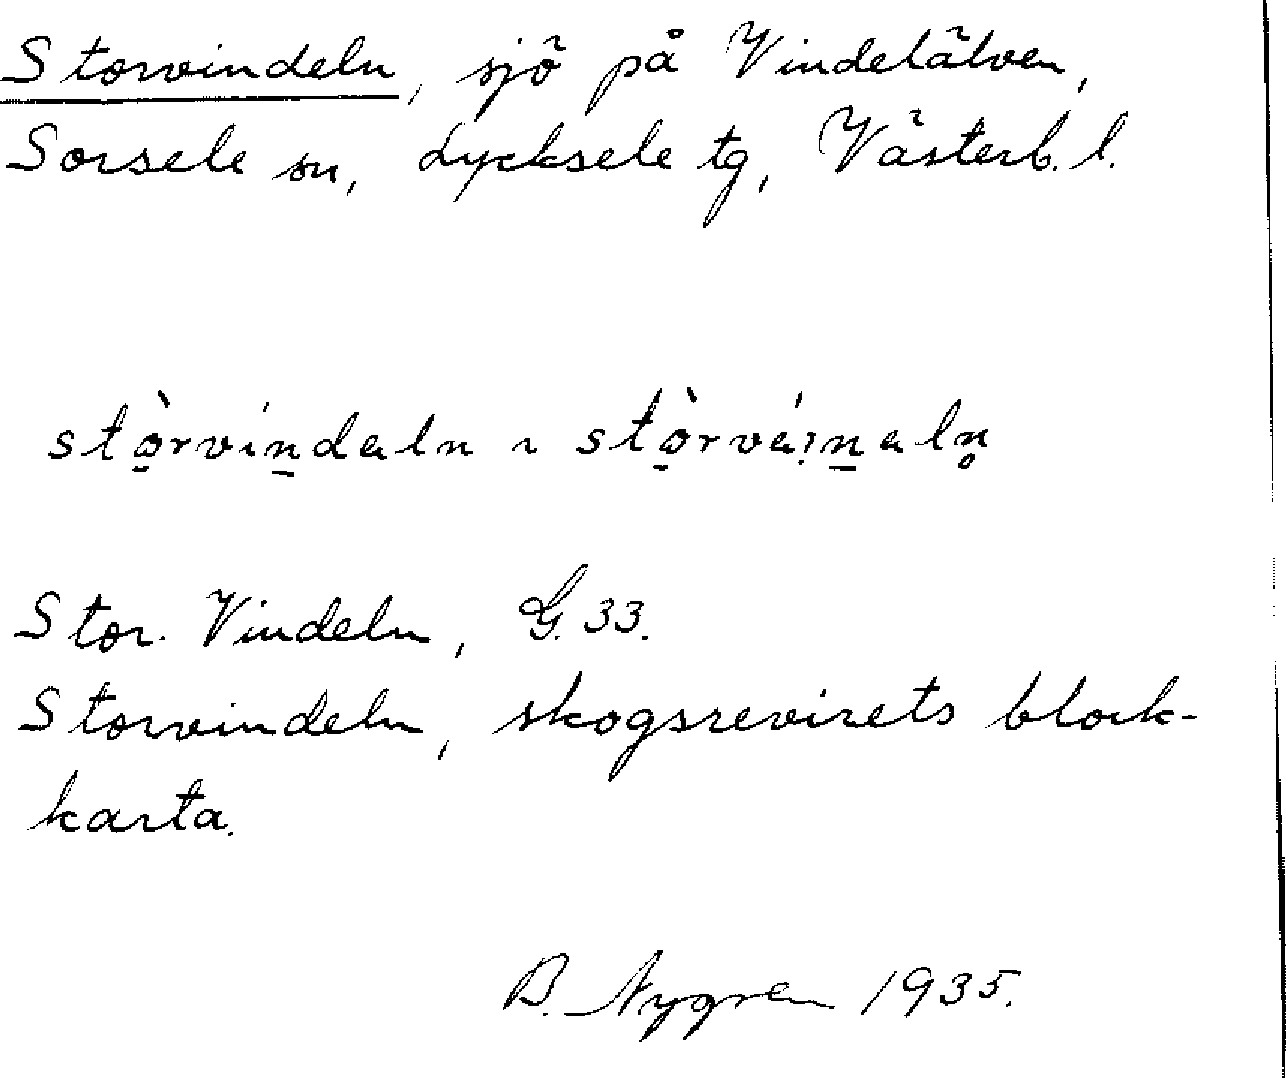 Storvindeln, sjö på Vindelälven,
Sorsele sn, Lycksele tg, Västerb. l.
stò̠rvín̠daln ~ stò̠rvá!n̠aln̥
Stor. Vindeln, G. 33.
Storvindeln, skogsrevirets block-
karta.
B. Nygren 1935.